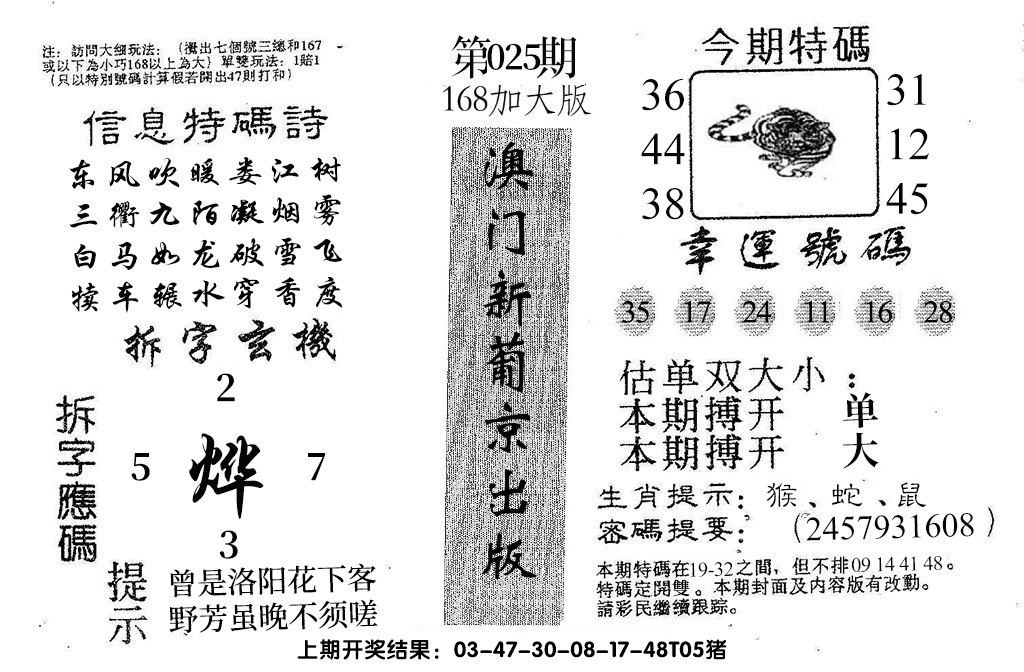 注：訪問大细玩法：（攪出七個號三總和167
或以下為小巧168以上為大）單雙玩法：1賠1
（只以特別號碼計算假若開出47則打和）
信息特碼詩
东风吹暖娄江树
三衢九陌凝烟雾
白马如龙破雪飞
犊车辗水穿香度
拆字玄機
2
5 烨 7
3
拆字應碼
提示
曾是洛阳花下客
野芳虽晚不须嗟
第025期
168加大版
澳门新葡京出版
今期特碼
36 31
44 12
38 45
幸運號碼
35 17 24 11 16 28
估单双大小：
本期搏开 单
本期搏开 大
生肖提示：猴、蛇、鼠
密碼提要：（2457931608）
本期特碼在19-32之間，但不排09 14 41 48。
特碼定開雙。本期封面及内容版有改動。
請彩民繼續跟踪。
上期开奖结果：03-47-30-08-17-48T05猪